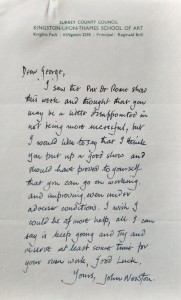 SURREY COUNTY COUNCIL
KINGSTON-UPON-THAMES SCHOOL OF ART
Knights Park · Kingston 0259 · Principal: Reginald Brill
Dear George,
I saw the Prix de Rome show
this week and thought that you
may be a little disappointed in
not being more successful, but
I would like to say that I think
you put up a good show and
should have proved to yourself
that you can go on working
and improving even under
adverse conditions. I wish I
could be of more help, all I can
say is keep going and try and
reserve at least some time for
your own work, Good Luck,
Yours, John